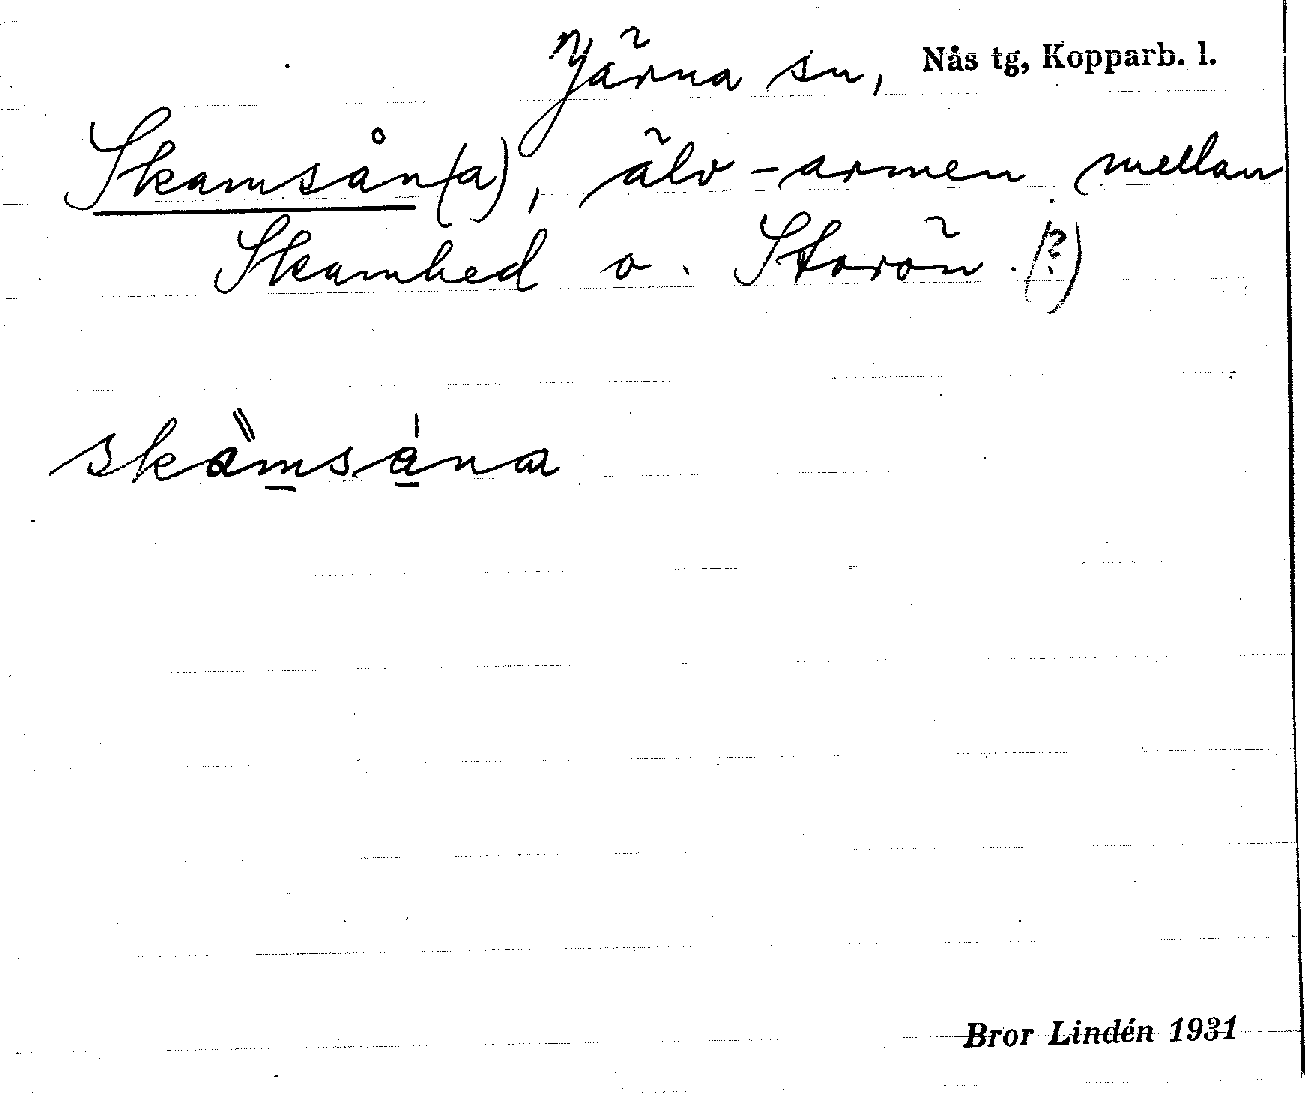 Järna sn, Nås tg, Kopparb. l.
Skamsån(a), älv-armen mellan
Skamhed o. Storön (?)
skàmsána
Bror Lindén 1931